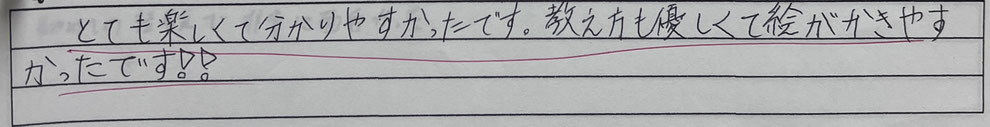 とても楽しくて分かりやすかったです。教え方も優しくて絵がかきやす
かったです!!